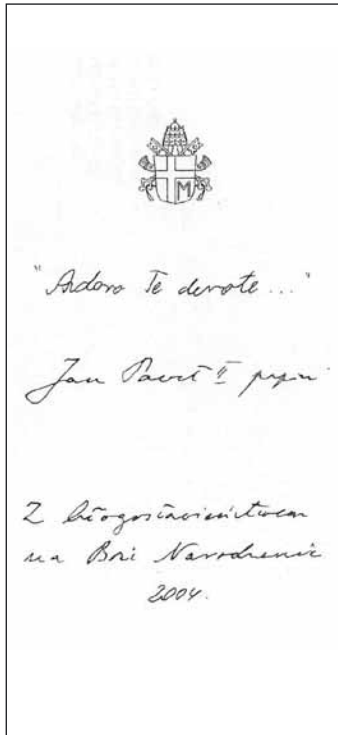 M
"Adoro Te devote..."
Jan Paweł II papież
Z błogosławieństwem
na Boże Narodzenie
2004.